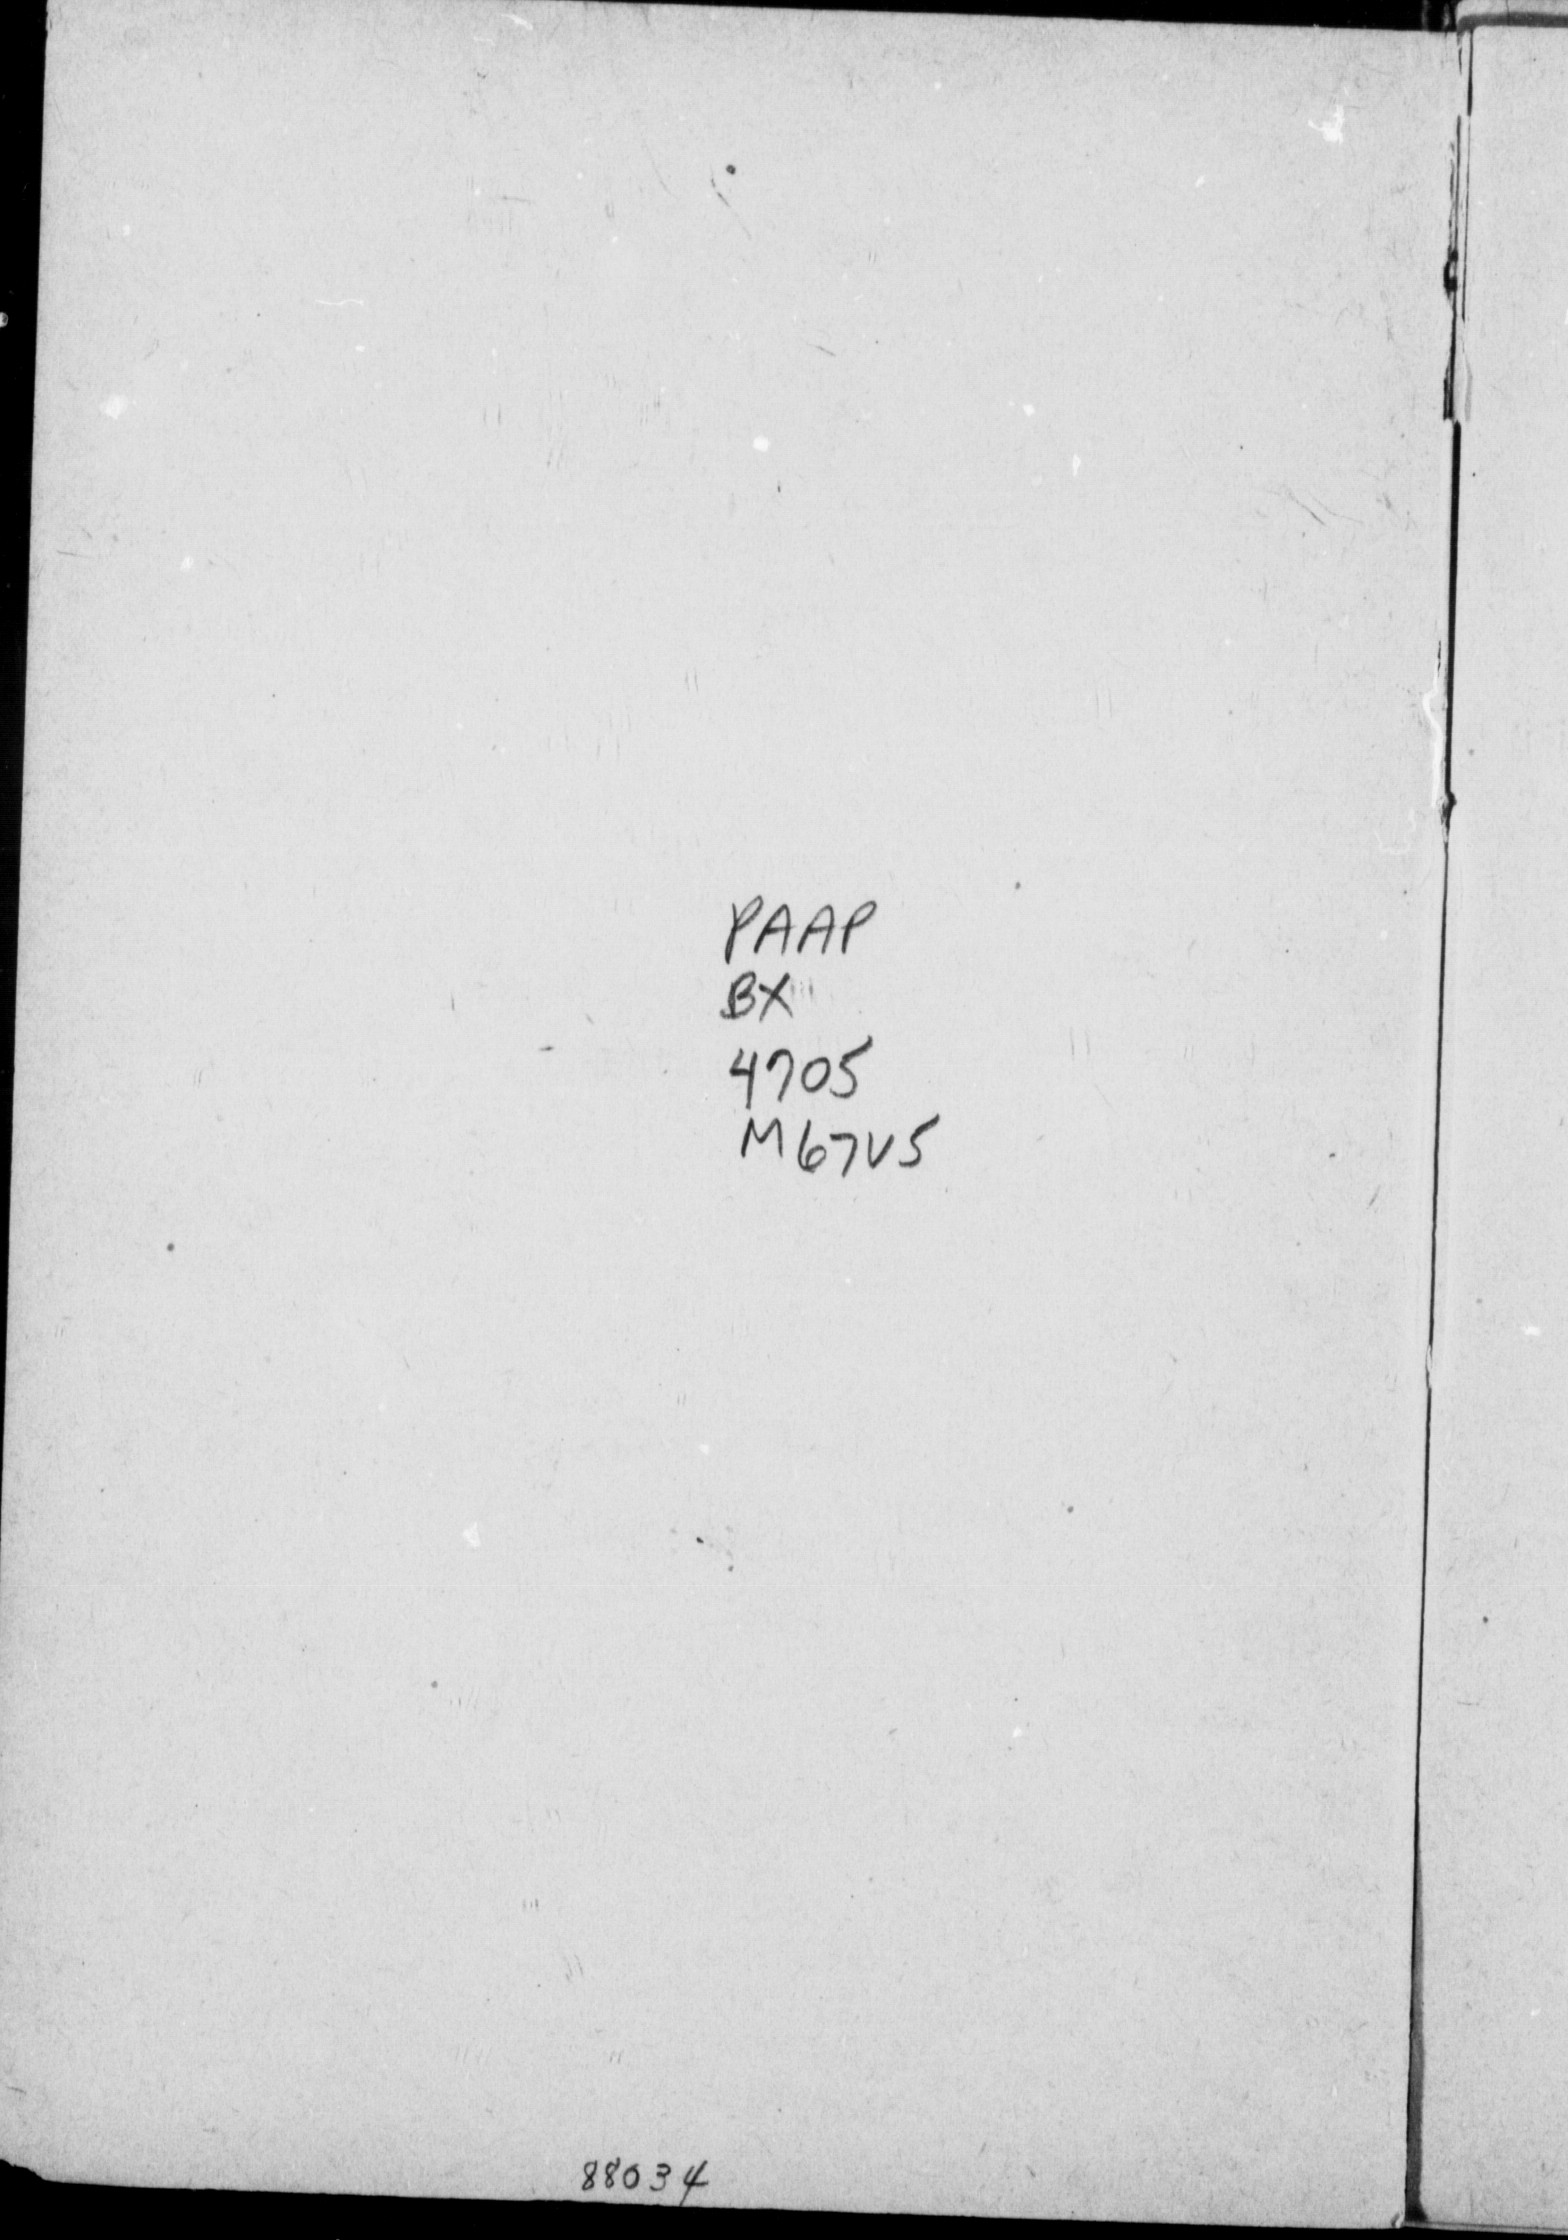 PAAP
BX
4705
M67V5
88034